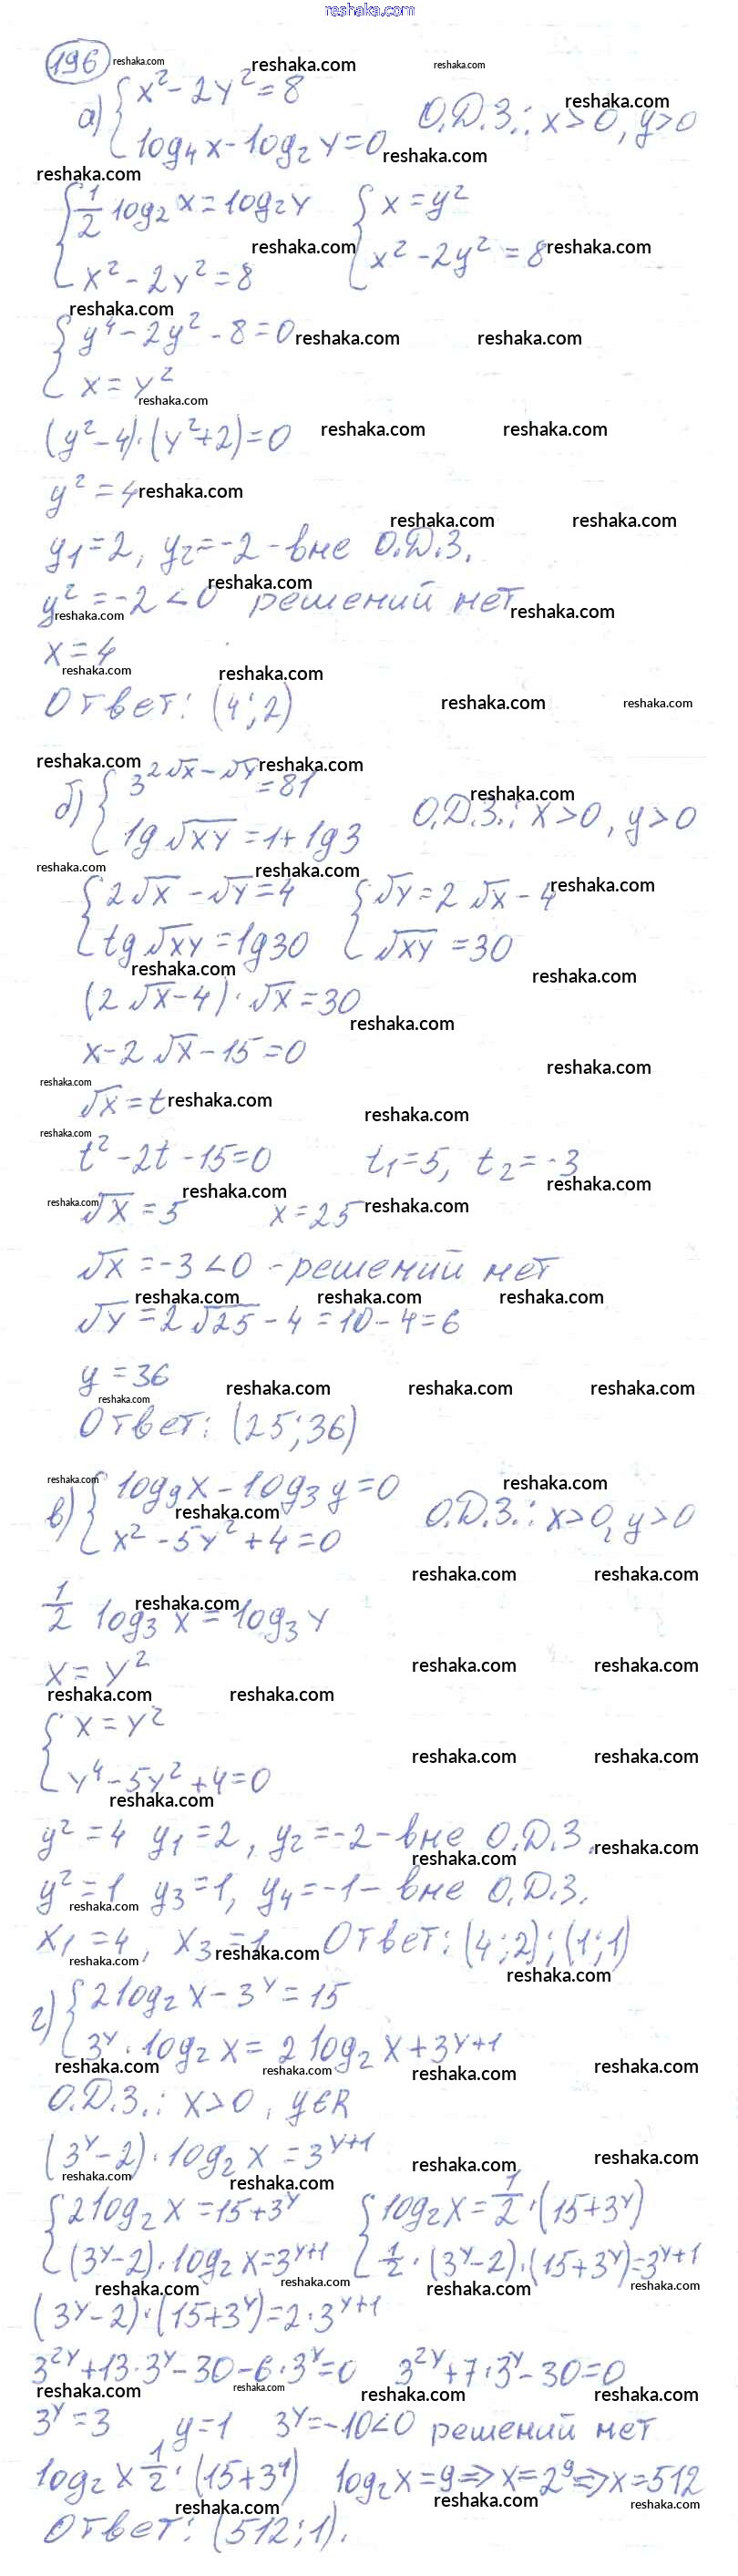 reshaka.com
196
а) { x² - 2y² = 8
log₄ x - log₂ y = 0 О.Д.З.: x > 0, y > 0
{ 1/2 log₂ x = log₂ y { x = y²
x² - 2y² = 8 x² - 2y² = 8
{ y⁴ - 2y² - 8 = 0
x = y²
(y² - 4)·(y² + 2) = 0
y² = 4
y₁ = 2, y₂ = -2 - вне О.Д.З.
y² = -2 < 0 решений нет
x = 4
Ответ: (4; 2)
б) { 3^(2√x - √y) = 81
lg √xy = 1 + lg 3 О.Д.З.: x > 0, y > 0
{ 2√x - √y = 4 { √y = 2√x - 4
tg √xy = lg 30 √xy = 30
(2√x - 4)·√x = 30
x - 2√x - 15 = 0
√x = t
t² - 2t - 15 = 0 t₁ = 5, t₂ = -3
√x = 5 x = 25
√x = -3 < 0 - решений нет
√y = 2√25 - 4 = 10 - 4 = 6
y = 36
Ответ: (25; 36)
в) { log₉ x - log₃ y = 0
x² - 5y² + 4 = 0 О.Д.З.: x > 0, y > 0
1/2 log₃ x = log₃ y
x = y²
{ x = y²
y⁴ - 5y² + 4 = 0
y² = 4 y₁ = 2, y₂ = -2 - вне О.Д.З.
y² = 1 y₃ = 1, y₄ = -1 - вне О.Д.З.
x₁ = 4, x₃ = 1 Ответ: (4; 2); (1; 1)
г) { 2 log₂ x - 3^y = 15
3^y · log₂ x = 2 log₂ x + 3^(y+1)
О.Д.З.: x > 0, y ∈ R
(3^y - 2)·log₂ x = 3^(y+1)
{ 2 log₂ x = 15 + 3^y { log₂ x = 1/2·(15 + 3^y)
(3^y - 2)·log₂ x = 3^(y+1) 1/2·(3^y - 2)·(15 + 3^y) = 3^(y+1)
(3^y - 2)·(15 + 3^y) = 2·3^(y+1)
3^(2y) + 13·3^y - 30 - 6·3^y = 0 3^(2y) + 7·3^y - 30 = 0
3^y = 3 y = 1 3^y = -10 < 0 решений нет
log₂ x 1/2·(15 + 3¹) log₂ x = 9 => x = 2⁹ => x = 512
Ответ: (512; 1).